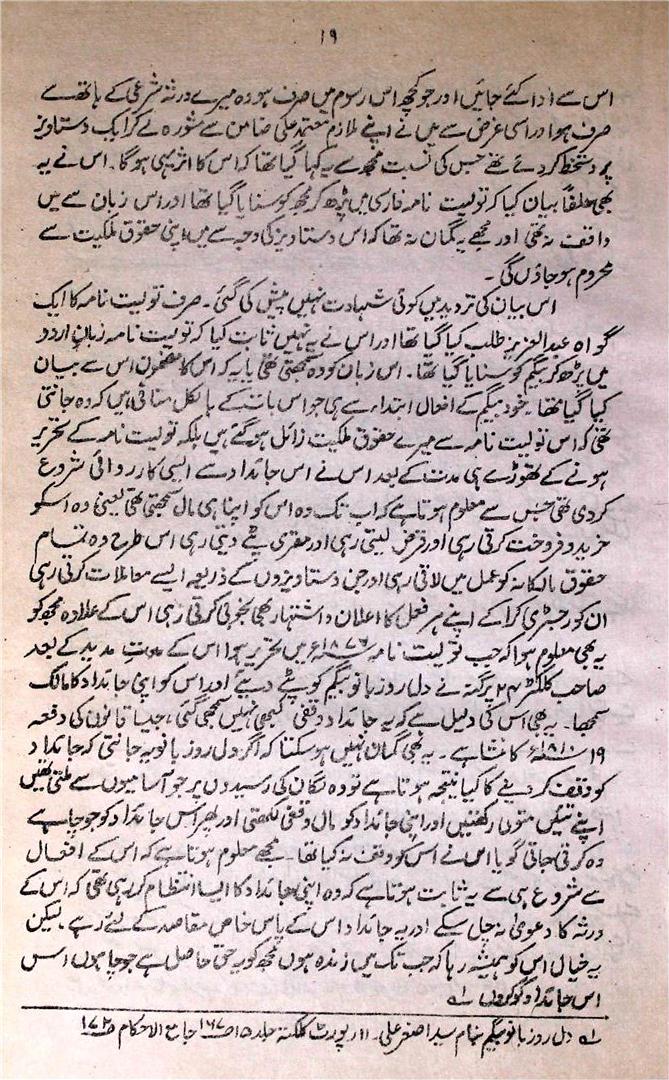 ۱۹
اس سے ادا کئے جائیں اور جو کچھ اس رسوم میں صرف ہو وہ میرے ورثہ شرعی کے ہاتھ سے
صرف ہو اور اسی غرض سے میں نے اپنے ملازم معتمد علی ضامن سے مشورہ لے کر ایک دستاویز
پر دستخط کر دئے تھے جس کی نسبت مجھ سے یہ کہا گیا تھا کہ اس کا اثر یہی ہو گا۔ اس نے یہ
بھی حلفاً بیان کیا کہ تولیت نامہ فارسی میں پڑھ کر مجھ کو سنایا گیا تھا اور اس زبان سے میں
واقف نہ تھی اور مجھے یہ گمان نہ تھا کہ اس دستاویز کی وجہ سے میں اپنی حقوق ملکیت سے
محروم ہو جاؤں گی۔
اس بیان کی تردید میں کوئی شہادت نہیں پیش کی گئی۔ صرف تولیت نامہ کا ایک
گواہ عبدالعزیز طلب کیا گیا تھا اور اس نے یہ نہیں ثابت کیا کہ تولیت نامہ زبان اردو
میں پڑھ کر بیگم کو سنایا گیا تھا۔ اس زبان کو وہ سمجھتی تھی یا یہ کہ اس کا مضمون اس سے بیان
کیا گیا تھا۔ خود بیگم کے افعال ابتداء سے ہی جو اس بات کے بالکل منافی ہیں کہ وہ جانتی
تھی کہ اس تولیت نامہ سے میرے حقوق ملکیت زائل ہو گئے ہیں بلکہ تولیت نامہ کے تحریر
ہونے کے تھوڑے ہی مدت کے بعد اس نے اس جائداد سے ایسی کارروائی شروع
کر دی تھی جس سے معلوم ہوتا ہے کہ اب تک وہ اس کو اپنا ہی مال سمجھتی تھی یعنی وہ اسکو
خرید و فروخت کرتی رہی اور قرض لیتی رہی اور مقرری پٹے دیتی رہی اس طرح وہ تمام
حقوق مالکانہ کو عمل میں لاتی رہی اور جن دستاویزوں کے ذریعہ ایسے معاملات کرتی رہی
ان کو رجسٹری کرا کے اپنے ہر فعل کا اعلان و اشتہار بھی بخوبی کرتی رہی اس کے علاوہ مجھ کو
یہ بھی معلوم ہوا کہ جب تولیت نامہ ۱۸۷۶ء میں تحریر ہوا اس کے مدت مدید کے بعد
صاحب کلکٹر ۲۴ پرگنہ نے دل روز بانو بیگم کو پٹے دیئے اور اس کو اپنی جائداد کا مالک
سمجھا۔ یہ بھی اس کی دلیل ہے کہ یہ جائداد وقفی کبھی نہیں سمجھی گئی، جیسا قانون کی دفعہ
۱۹ ۱۸۱۰ء کا منشا ہے۔ یہ بھی گمان نہیں ہو سکتا کہ اگر دل روز بانو یہ جانتی کہ جائداد
کو وقف کر دینے کا کیا نتیجہ ہوتا ہے تو وہ لگان کی رسیدوں پر جو آسامیوں سے ملتی تھیں
اپنے تئیں متولی رکھتیں اور اپنی جائداد کو مال وقفی لکھتی اور پھر اس جائداد کو جو چاہے
وہ کرتی جاتی گویا اس نے اس کو وقف نہ کیا تھا۔ مجھے معلوم ہوتا ہے کہ اس کے افعال
سے شروع ہی سے یہ ثابت ہوتا ہے کہ وہ اپنی جائداد کا ایسا انتظام کر رہی تھی کہ اس کے
ورثہ کا دعویٰ نہ چل سکے اور یہ جائداد اس کے پاس خاص مقاصد کے لئے رہے۔ لیکن
یہ خیال اس کو ہمیشہ رہا کہ جب تک میں زندہ ہوں مجھ کو یہ حق حاصل ہے جو چاہوں اس
اس جائداد کو کروں ۱؎
۱؎ دل روز بانو بیگم بنام سید اصغر علی۔ ۱۱ رپورٹ کلکتہ جلد ۱۵ ص۱۶۷ جامع الاحکام ص۱۷۲